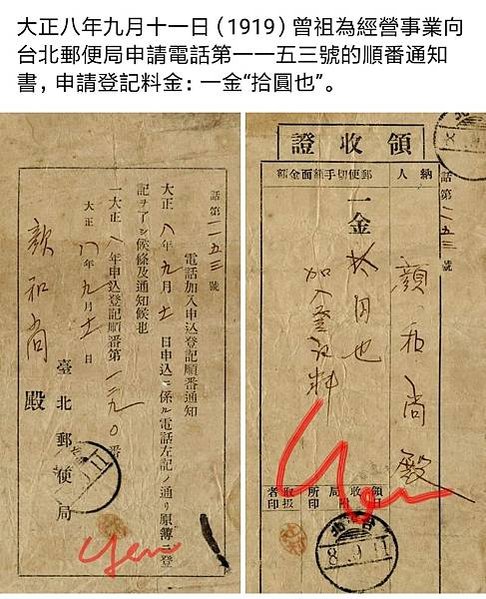 大正八年九月十一日（1919）曾祖為經營事業向
台北郵便局申請電話第一一五三號的順番通知
書，申請登記料金：一金“拾圓也”。
話第一一五三號
電話加入申込登記順番通知
大正八年九月十一日申込ニ係ル電話左記ノ通リ原簿ニ登
記ヲ了シ候條及通知候也
一大正八年申込登記順番第
大正八年九月十一日
臺北郵便局
顏和尚殿
9.11
Yen
領收證
話第一一五三號
納人
顏和尚殿
郵便切手
一金拾円也
加入登記料
領收局所印
取扱者印
Yen
臺北
8.9.11